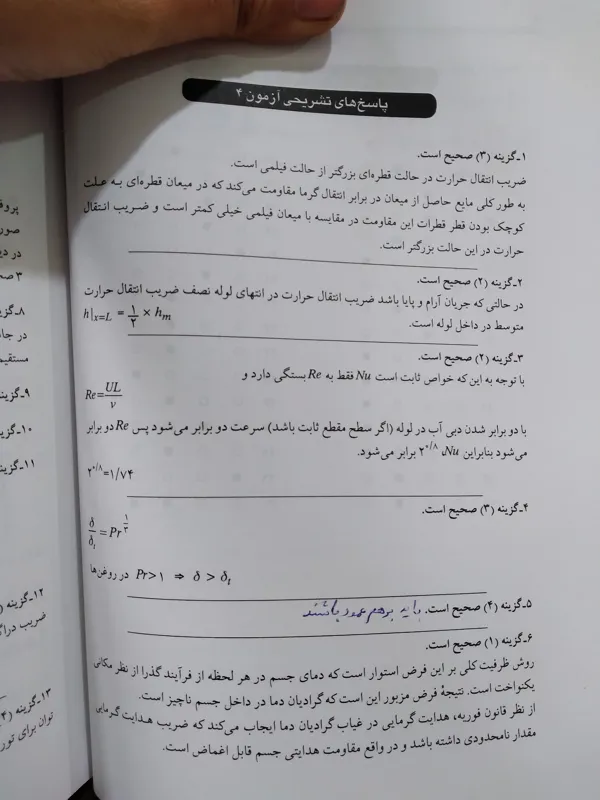 پاسخ‌های تشریحی آزمون ۴
۱ـ گزینه (۳) صحیح است.
ضریب انتقال حرارت در حالت قطره‌ای بزرگتر از حالت فیلمی است.
به طور کلی مایع حاصل از میعان در برابر انتقال گرما مقاومت می‌کند که در میعان قطره‌ای به علت
کوچک بودن قطر قطرات این مقاومت در مقایسه با میعان فیلمی خیلی کمتر است و ضریب انتقال
حرارت در این حالت بزرگتر است.
۲ـ گزینه (۲) صحیح است.
در حالتی که جریان آرام و پایا باشد ضریب انتقال حرارت در انتهای لوله نصف ضریب انتقال حرارت
متوسط در داخل لوله است.
h|x=L = ۱/۲ × hm
۳ـ گزینه (۲) صحیح است.
با توجه به این که خواص ثابت است Nu فقط به Re بستگی دارد و
Re = UL/ν
با دو برابر شدن دبی آب در لوله (اگر سطح مقطع ثابت باشد) سرعت دو برابر می‌شود پس Re دو برابر
می‌شود بنابراین Nu، ۲^۰/۸ برابر می‌شود.
۲^۰/۸=۱/۷۴
۴ـ گزینه (۳) صحیح است.
δ/δt = Pr^۱/۳
در روغن‌ها Pr>۱ ⇒ δ > δt
۵ـ گزینه (۴) صحیح است. باید برهم عمود باشند
۶ـ گزینه (۱) صحیح است.
روش ظرفیت کلی بر این فرض استوار است که دمای جسم در هر لحظه از فرآیند گذرا از نظر مکانی
یکنواخت است. نتیجهٔ فرض مزبور این است که گرادیان دما در داخل جسم ناچیز است.
از نظر قانون فوریه، هدایت گرمایی در غیاب گرادیان دما ایجاب می‌کند که ضریب هدایت گرمایی
مقدار نامحدودی داشته باشد و در واقع مقاومت هدایتی جسم قابل اغماض است.
در دی
۳ صح
۸ـ گزی
در جان
مستقیم
۹ـ گزین
۱۰ـ گزی
۱۱ـ گزی
۱۲ـ گزینه (
ضریب دراگ
۱۳ـ گزینه (۴
توان برای تور